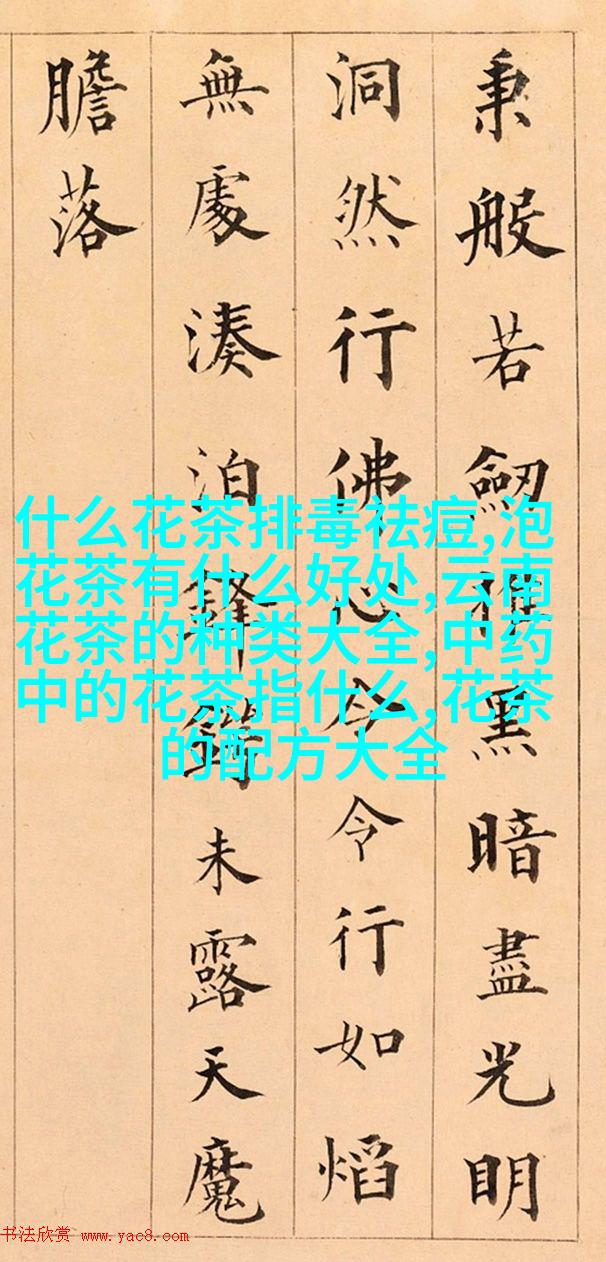 秉般若劒摧黑暗盡光明
洞然行佛心令令行如熖
無處湊泊鋒鍔未露天魔
膽落
什么花茶排毒祛痘,泡
花茶有什么好处,云南
花茶的种类大全,中药
中的花茶指什么,花茶
的配方大全
书法欣赏 www.yac8.com